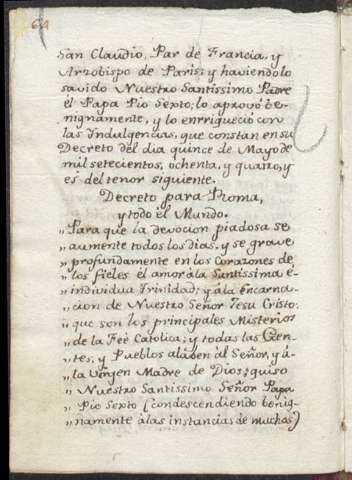 64
San Claudio, Par de Francia, y
Arzobispo de Paris; y haviendolo
savido Nuestro Santissimo Padre
él Papa Pio Sexto; lo aprovó be-
nignamente, y lo enrriqueció con
las Yndulgencias, que constan en su
Decreto dél dia quince de Mayo de
mil setecientos, ochenta, y quatro, y
es del tenor siguiente.
Decreto para Rroma,
y todo el Mundo.
„ Para que la devocion piadosa se
„ aumente todos los dias, y se grave
„ profundamente en los Corazones de
„ los fieles él amor à la Santissima é-
„ individua Trinidad; y à la Encarna-
„ cion de Nuestro Señor Jesu Cristo.
„ que son los principales Misterios
„ de la Feé Catolica; y todas las Gen-
„ tes, y Pueblos alaben al Señor, y à-
„ la Virgen Madre de Dios; quiso
„ Nuestro Santissimo Señor Papa
„ Pio Sexto (condescendiendo benig-
„ namente à las instancias de muchos)